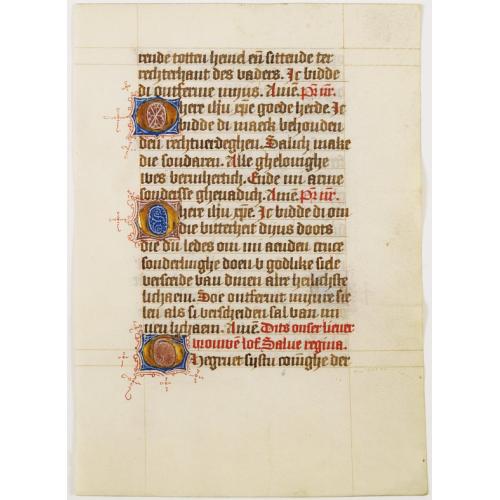 rende totten hemel en̄ sittende ter
rechterhant des vaders. Ic bidde
di ontferme mijns. Amē. Pr̄ nr̄.
O here ih̄u xp̄e goede herde. Ic
bidde di maeck behouden
den rechtuerdeghen. Salich make
die sondaren. Alle ghelouighe
wes bermhertich. Ende mi arme
sonderse ghenadich. Amē. Pr̄ nr̄.
O here ih̄u xp̄e. Ic bidde di om
die bitterheit dijns doots
die du ledes om mi aenden cruce
sonderlinghe doen v godlike siele
versceide van dinen alre heilichste
lichaem. Soe ontfermt mijnre sie
len als si versceiden sal van mi
nen lichaem. Amē. Dit is onser lieuer
vrouwē lof. Salue regina.
Gegruet sijstu coniīghe der